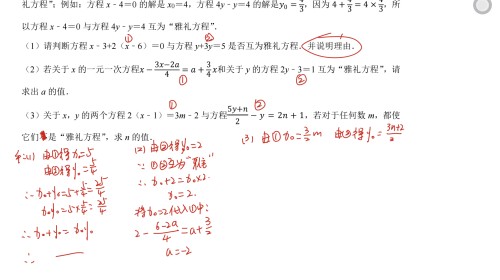 礼方程”；例如：方程 x - 4=0 的解是 x₀=4，方程 4y - y=4 的解是y₀ = 4/3，因为 4 + 4/3 = 4 × 4/3，所
以方程 x - 4=0 与方程 4y - y=4 互为“雅礼方程”.
① ②
（1）请判断方程 x - 3+2（x - 6）=0 与方程 y+3y=5 是否互为雅礼方程.并说明理由.
（2）若关于 x 的一元一次方程x − (3x−2a)/4 = a + 3/4 x和关于 y 的方程 2y - 3=1 互为“雅礼方程”，请
① ②
求出 a 的值.
① ②
（3）关于 x，y 的两个方程 2（x - 1）=3m - 2 与方程(5y+n)/2 − y = 2n + 1，若对于任何数 m，都使
它们是“雅礼方程”，求 n 的值.
(3) 由① x₀=3/2 m 由②得y₀=(3n+2)/3
由①得x₀=5
由②得y₀=5/4
∴x₀+y₀=5+5/4=25/4
x₀y₀=5×5/4=25/4
∴x₀+y₀=x₀y₀
∴
(2) 由②得y₀=2
∵①②互为“雅礼”
∴x₀+2=x₀×2
x₀=2
将x₀=2代入①中：
2 - (6-2a)/4 = a + 3/2
a=-2